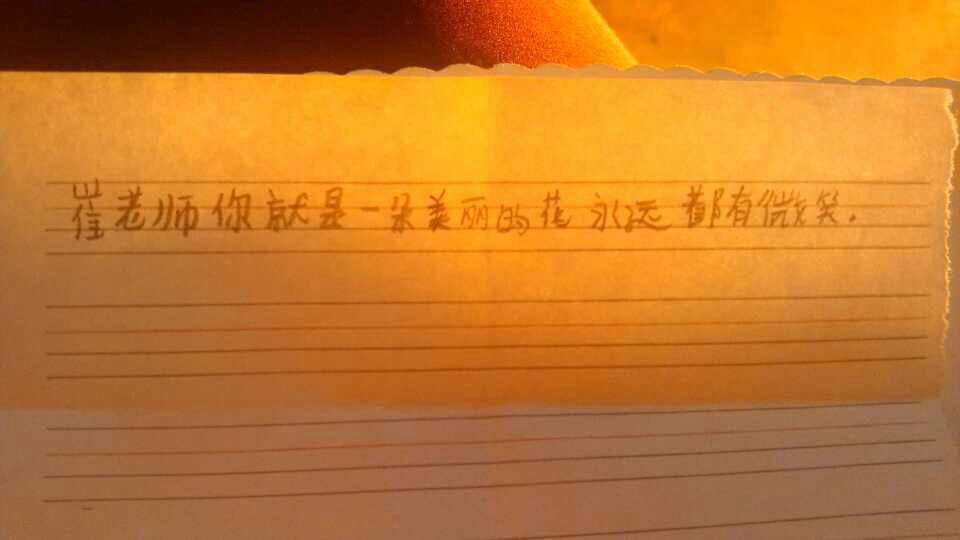 崔老师你就是一朵美丽的花永远都有微笑.